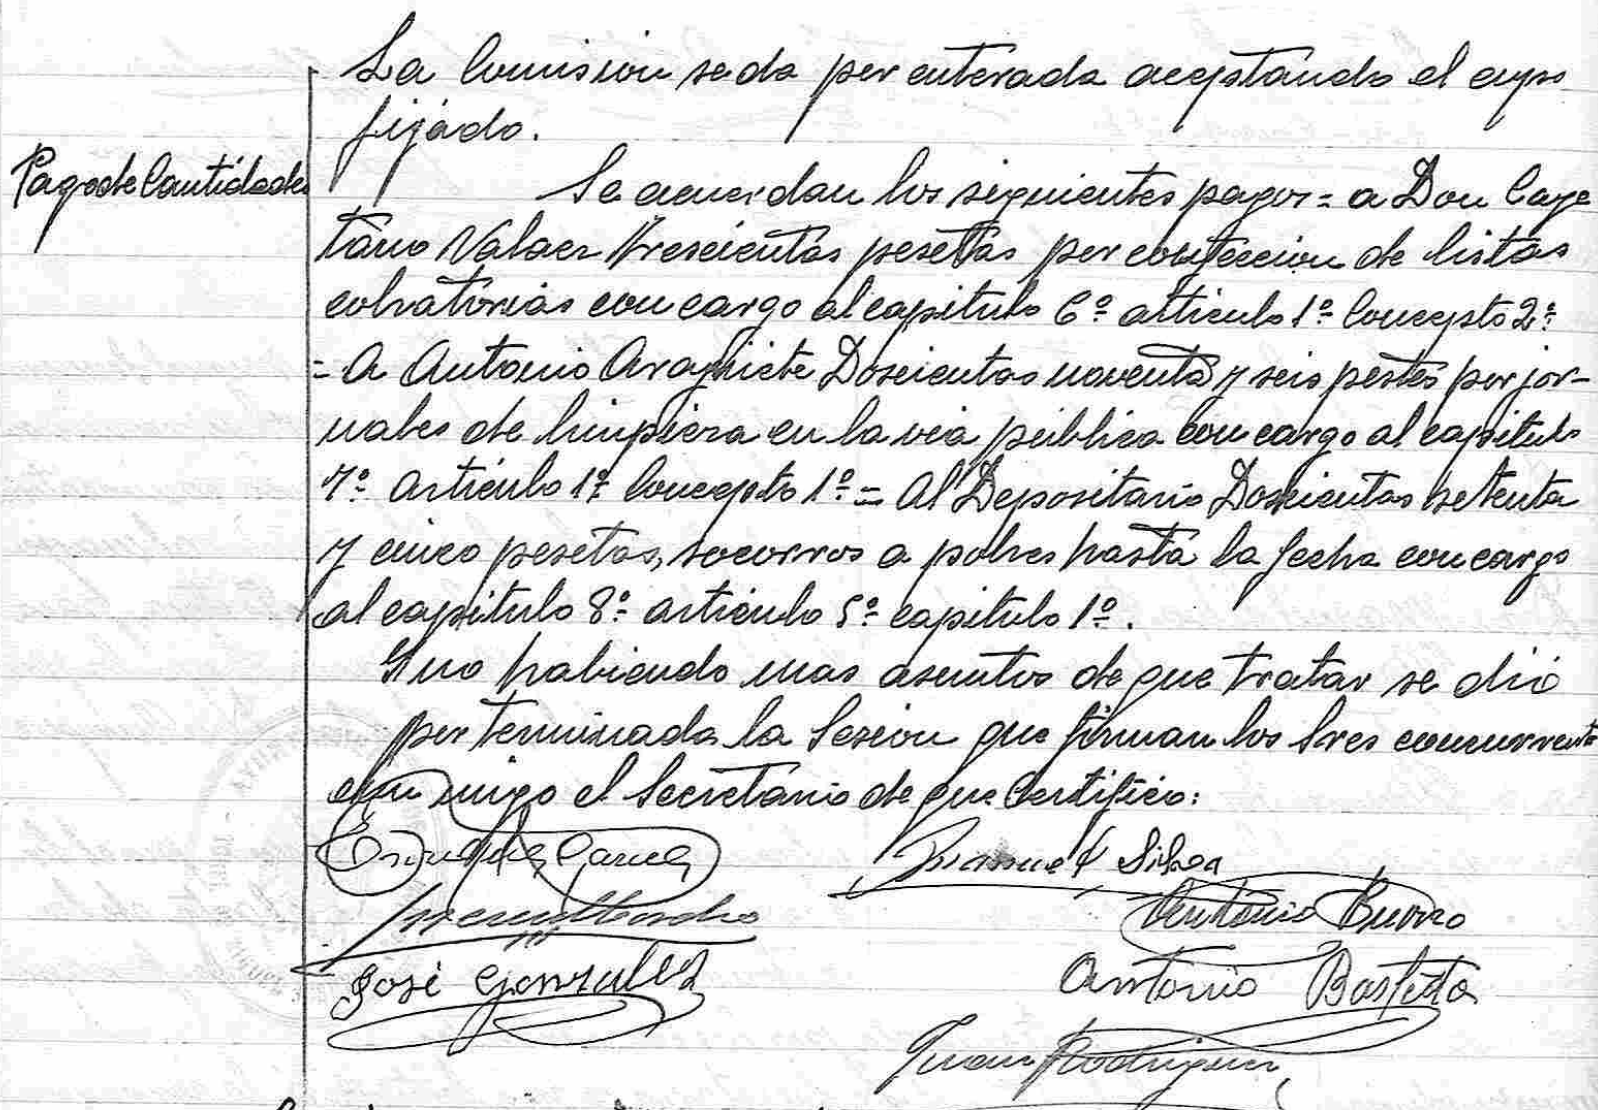 La Comision se da por enterada aceptando el cupo
fijado.
Pago de Cantidades
Se acuerdan los siguientes pagos = a Don Caye
tano Valaer Trescientas pesetas por confeccion de listas
cobratorias con cargo al capitulo 6º articulo 1º Concepto 2º
= A Antonio Doscientas noventa y seis pestes por jor-
nales de limpieza en la via publica con cargo al capitulo
7º articulo 1º Concepto 1º = Al Depositario Doscientas setenta
y cinco pesetas, socorros a pobres hasta la fecha con cargo
al capitulo 8º articulo 5º capitulo 1º.
Y no habiendo mas asuntos de que tratar se dió
por terminada la Sesion que firman los Sres concurrente
conmigo el Secretario de que Certifico:
Enrique Garcia Manuel Silva
Antonio Curro
José Gonzalez Antonio
Juan Rodriguez